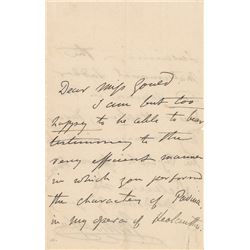 Dear Miss Gould
I am but too
happy to be able to bear
testimony to the
very efficient manner
in which you perform
the character of
in my opera of